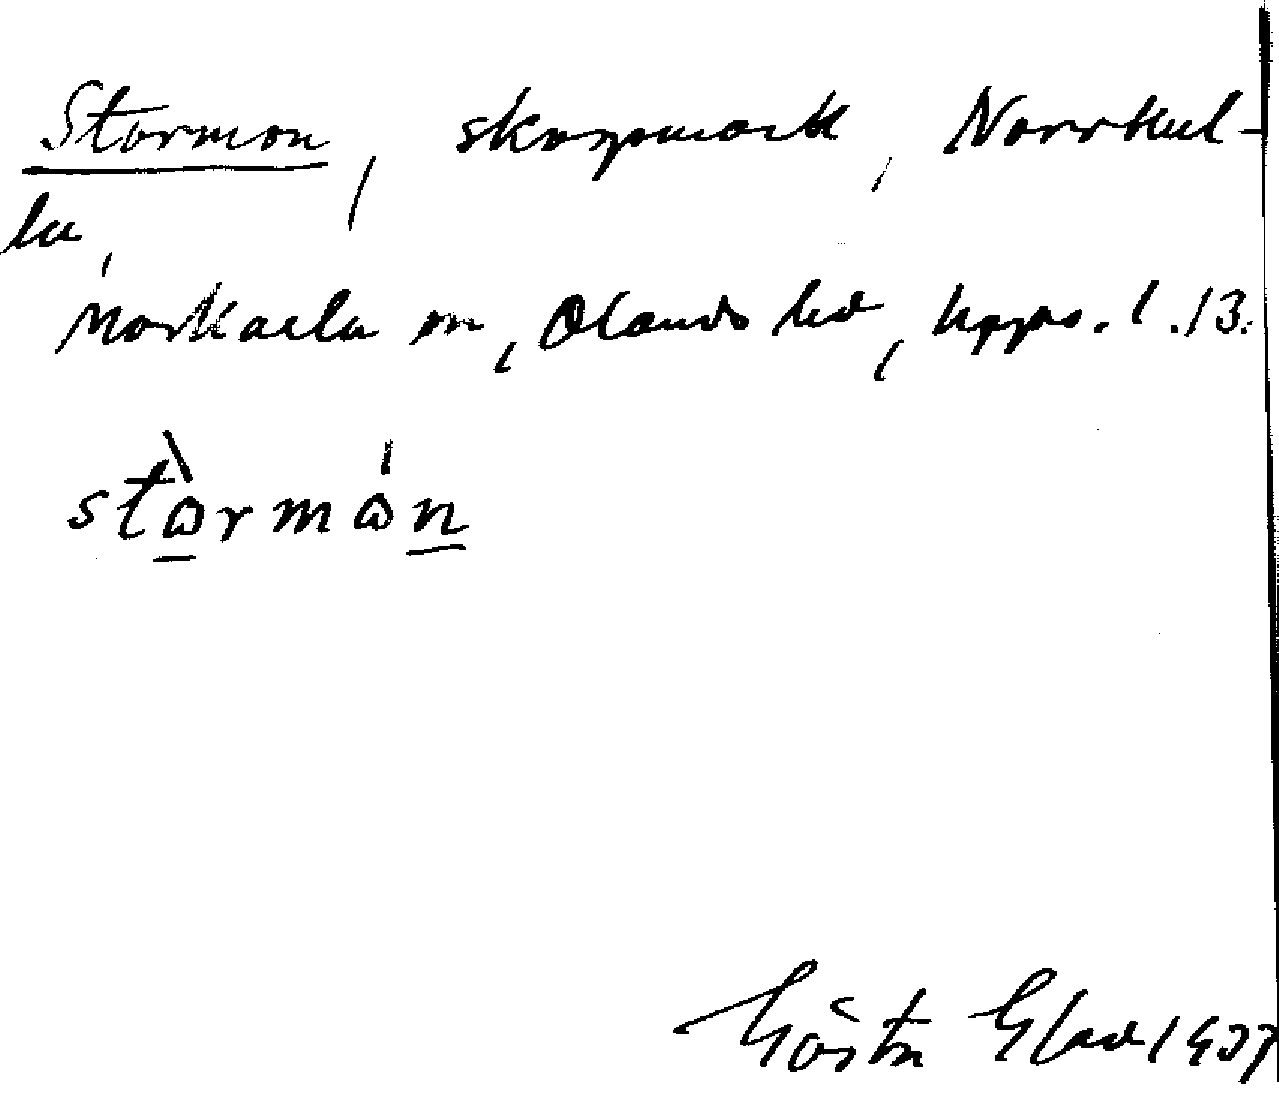 Stormon, skogsmark, Norrkul-
la,
Morkarla sn, Olands hd, Upps. l. 13.
stɷ̀rmɷ́n
Gösta Glad 1937